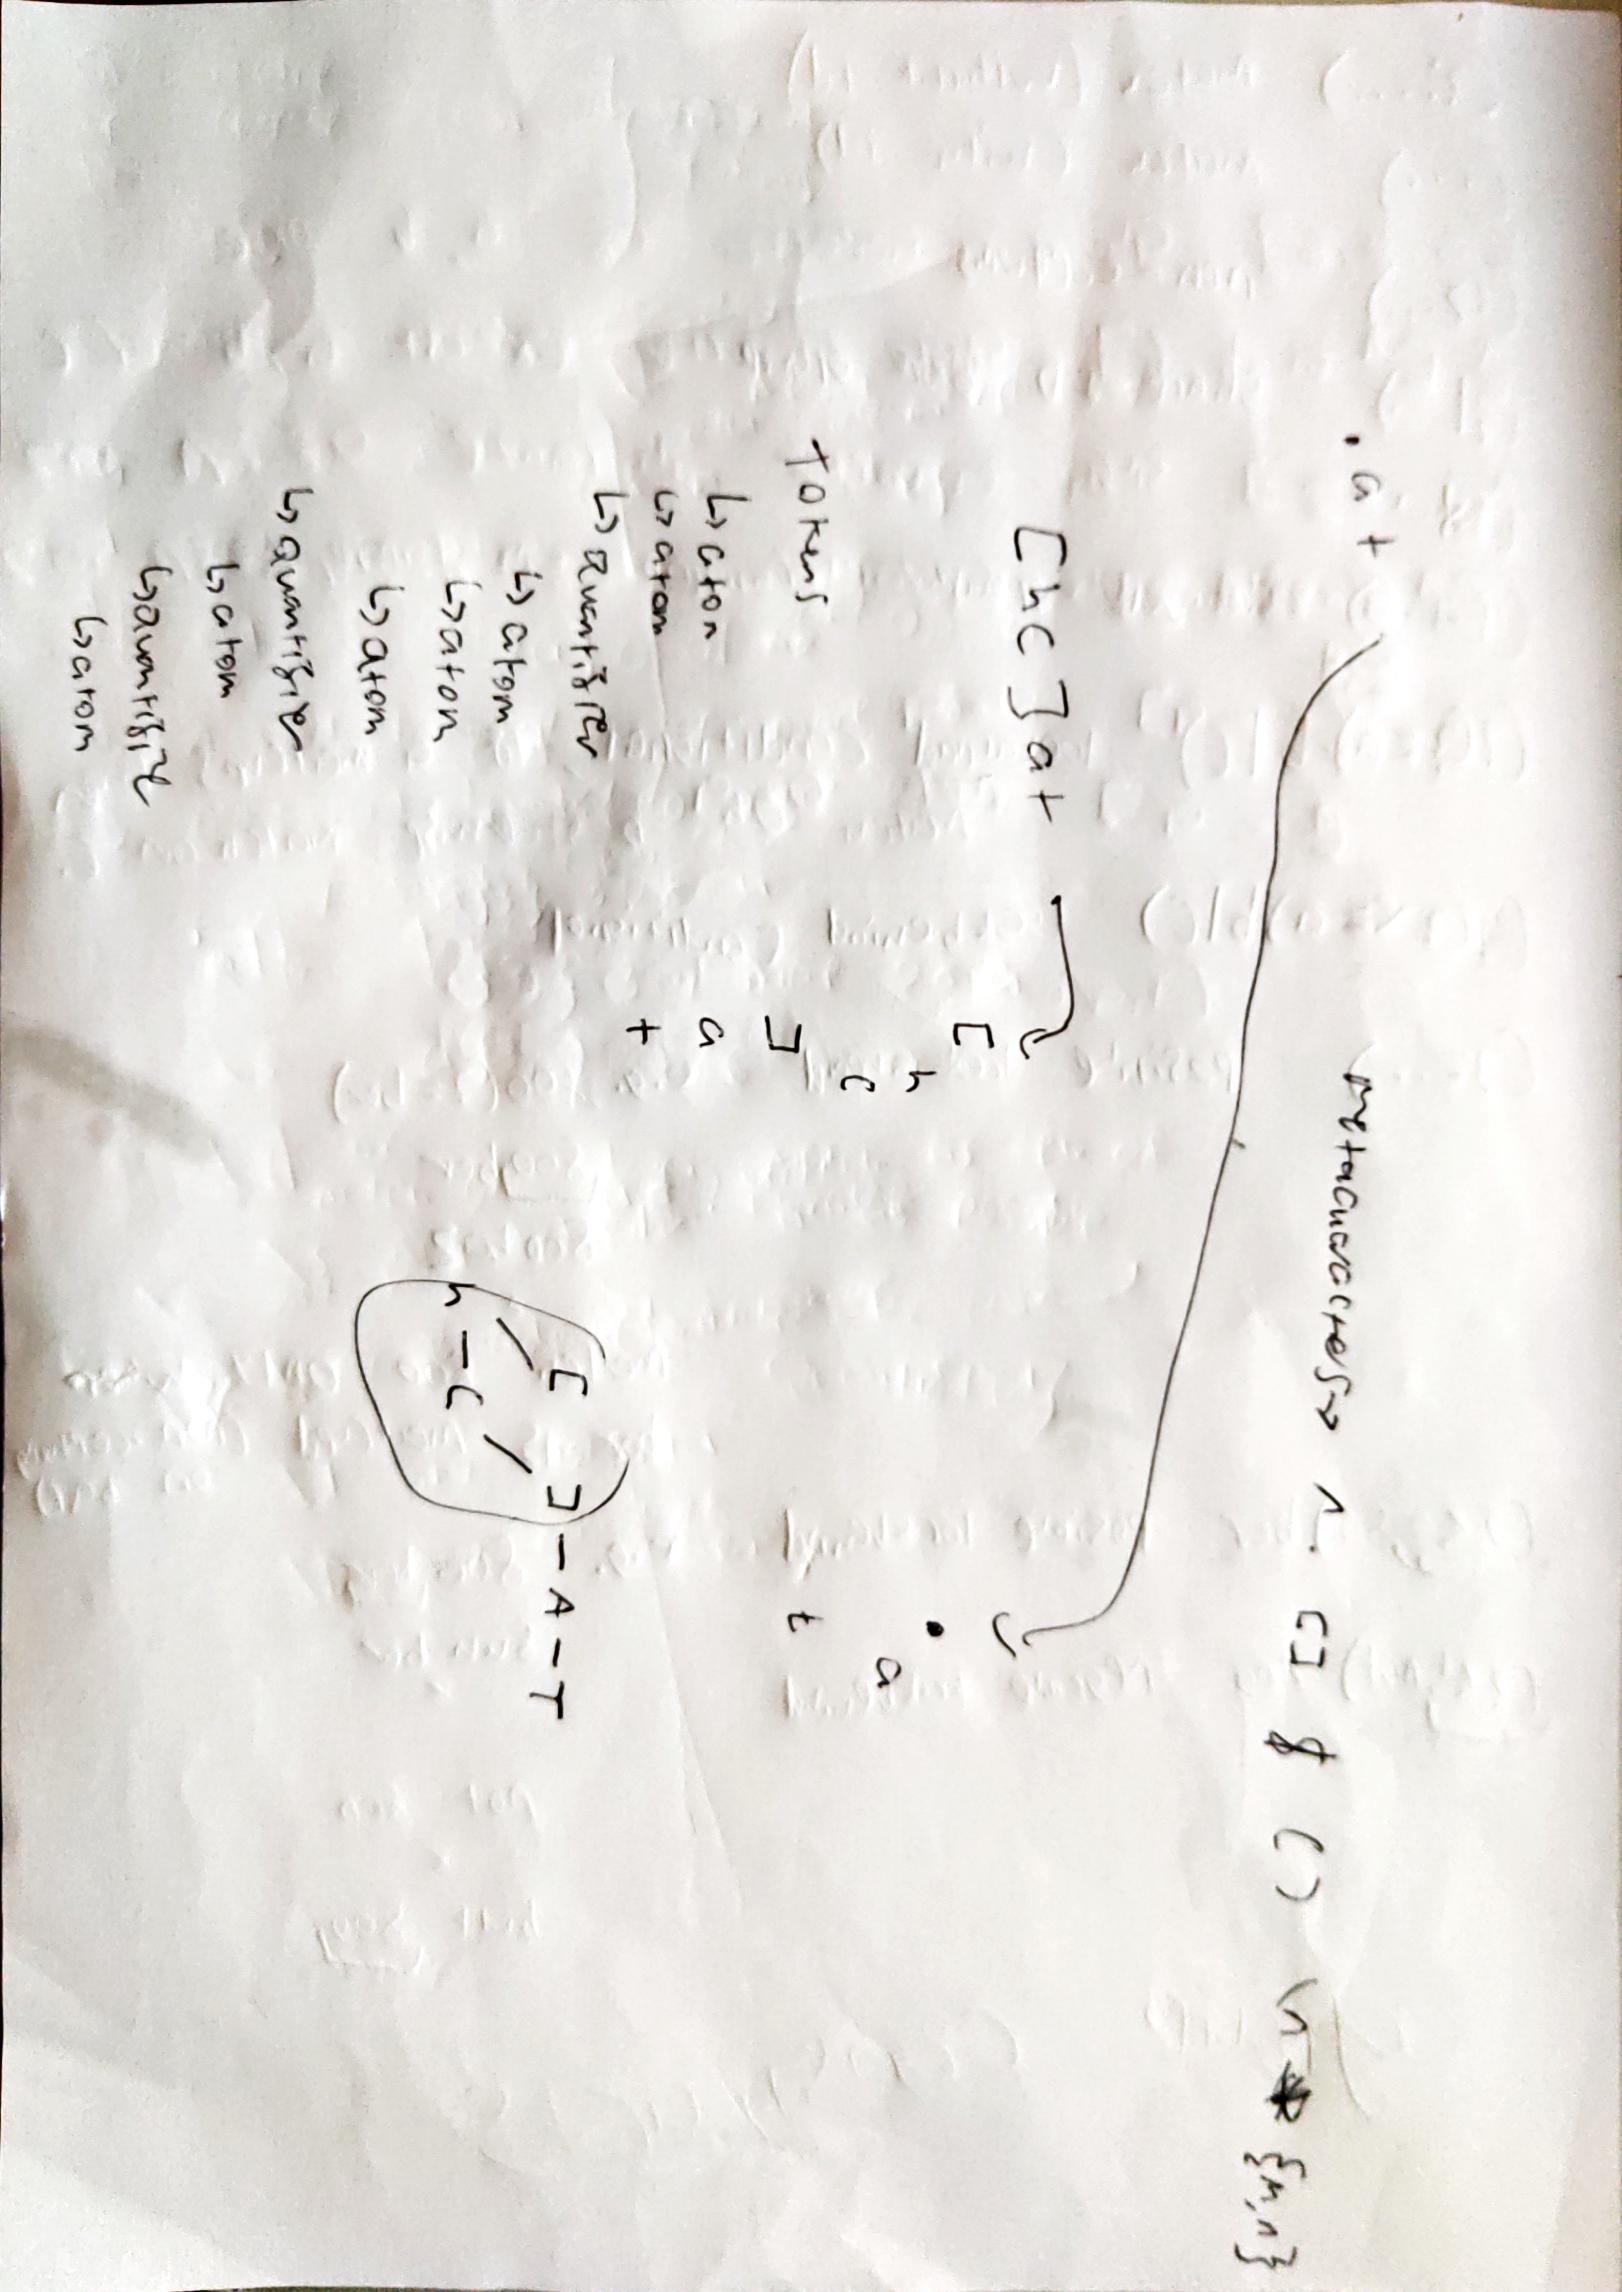 .at
metacharacters → ^ . [] $ () \n * {m,n}
[hc]at
[
h
c
]
a
t
.
a
t
Tokens
↳ atom
↳ atom
↳ quantifier
↳ atom
↳ atom
↳ atom
↳ quantifier
↳ atom
↳ quantifier
↳ atom
[ ] - A - T
h - c